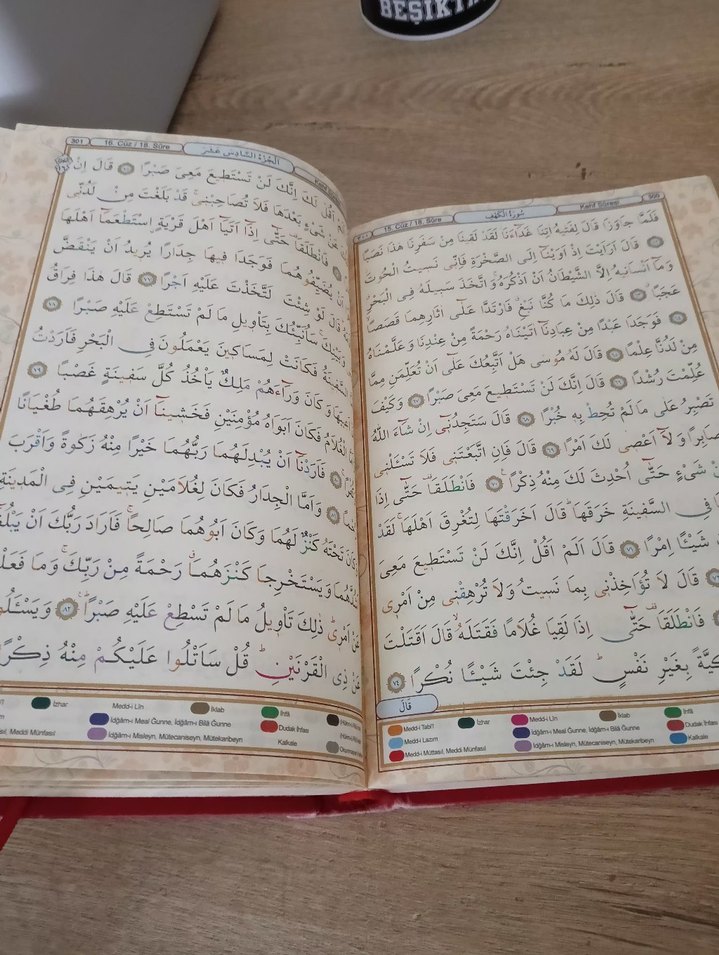 BEŞİKTA
15. Cüz / 18. Sûre سُورَةُ الْكَهْفِ Kehf Sûresi 300
فَلَمَّا جَاوَزَا قَالَ لِفَتٰيهُ اٰتِنَا غَدَٓاءَنَا لَقَدْ لَقِينَا مِنْ سَفَرِنَا هٰذَا نَصَبًا
﴿٦٢﴾ قَالَ اَرَاَيْتَ اِذْ اَوَيْنَٓا اِلَى الصَّخْرَةِ فَاِنِّى نَسِيتُ الْحُوتَ
وَمَٓا اَنْسَانِيهُ اِلَّا الشَّيْطَانُ اَنْ اَذْكُرَهُ وَاتَّخَذَ سَبِيلَهُ فِى الْبَحْرِ
عَجَبًا ﴿٦٣﴾ قَالَ ذٰلِكَ مَا كُنَّا نَبْغِ فَارْتَدَّا عَلٰٓى اٰثَارِهِمَا قَصَصًا
﴿٦٤﴾ فَوَجَدَا عَبْدًا مِنْ عِبَادِنَٓا اٰتَيْنَاهُ رَحْمَةً مِنْ عِنْدِنَا وَعَلَّمْنَاهُ
مِنْ لَدُنَّا عِلْمًا ﴿٦٥﴾ قَالَ لَهُ مُوسٰى هَلْ اَتَّبِعُكَ عَلٰٓى اَنْ تُعَلِّمَنِ مِمَّا
عُلِّمْتَ رُشْدًا ﴿٦٦﴾ قَالَ اِنَّكَ لَنْ تَسْتَطِيعَ مَعِىَ صَبْرًا ﴿٦٧﴾ وَكَيْفَ
تَصْبِرُ عَلٰى مَا لَمْ تُحِطْ بِهِ خُبْرًا ﴿٦٨﴾ قَالَ سَتَجِدُنِٓى اِنْ شَٓاءَ اللّٰهُ
صَابِرًا وَلَٓا اَعْصِى لَكَ اَمْرًا ﴿٦٩﴾ قَالَ فَاِنِ اتَّبَعْتَنِى فَلَا تَسْـَٔلْنِى
عَنْ شَىْءٍ حَتّٰٓى اُحْدِثَ لَكَ مِنْهُ ذِكْرًا ﴿٧٠﴾ فَانْطَلَقَا حَتّٰٓى اِذَا
فِى السَّفِينَةِ خَرَقَهَا قَالَ اَخَرَقْتَهَا لِتُغْرِقَ اَهْلَهَا لَقَدْ
شَيْـًٔا اِمْرًا ﴿٧١﴾ قَالَ اَلَمْ اَقُلْ اِنَّكَ لَنْ تَسْتَطِيعَ مَعِىَ
قَالَ لَا تُؤَاخِذْنِى بِمَا نَسِيتُ وَلَا تُرْهِقْنِى مِنْ اَمْرِى
فَانْطَلَقَا حَتّٰٓى اِذَا لَقِيَا غُلَامًا فَقَتَلَهُ قَالَ اَقَتَلْتَ
بِغَيْرِ نَفْسٍ لَقَدْ جِئْتَ شَيْـًٔا نُكْرًا ﴿٧٤﴾
قَالَ
Medd-i Tabi'î İzhar Medd-i Lîn İklab İhfâ
Medd-i Lazım İdğâm-ı Meal Ğunne, İdğâm-ı Bilâ Ğunne Dudak İhfası
Medd-i Muttasıl, Meddi Münfasıl İdğâm-ı Misleyn, Mütecaniseyn, Mütekaribeyn Kalkale
301 16. Cüz / 18. Sûre اَلْجُزْءُ السَّادِسَ عَشَرَ Kehf
اَقُلْ لَكَ اِنَّكَ لَنْ تَسْتَطِيعَ مَعِىَ صَبْرًا ﴿٧٥﴾ قَالَ اِنْ
شَىْءٍ بَعْدَهَا فَلَا تُصَاحِبْنِى قَدْ بَلَغْتَ مِنْ لَدُنِّى
فَانْطَلَقَا حَتّٰٓى اِذَٓا اَتَيَٓا اَهْلَ قَرْيَةٍ اسْتَطْعَمَٓا اَهْلَهَا
اَنْ يُضَيِّفُوهُمَا فَوَجَدَا فِيهَا جِدَارًا يُرِيدُ اَنْ يَنْقَضَّ
قَالَ لَوْ شِئْتَ لَتَّخَذْتَ عَلَيْهِ اَجْرًا ﴿٧٧﴾ قَالَ هٰذَا فِرَاقُ
وَبَيْنِكَ سَاُنَبِّئُكَ بِتَأْوِيلِ مَا لَمْ تَسْتَطِعْ عَلَيْهِ صَبْرًا ﴿٧٨﴾
السَّفِينَةُ فَكَانَتْ لِمَسَاكِينَ يَعْمَلُونَ فِى الْبَحْرِ فَاَرَدْتُ
اَعِيبَهَا وَكَانَ وَرَٓاءَهُمْ مَلِكٌ يَأْخُذُ كُلَّ سَفِينَةٍ غَصْبًا ﴿٧٩﴾
الْغُلَامُ فَكَانَ اَبَوَاهُ مُؤْمِنَيْنِ فَخَشِينَٓا اَنْ يُرْهِقَهُمَا طُغْيَانًا
فَاَرَدْنَٓا اَنْ يُبْدِلَهُمَا رَبُّهُمَا خَيْرًا مِنْهُ زَكٰوةً وَاَقْرَبَ
وَاَمَّا الْجِدَارُ فَكَانَ لِغُلَامَيْنِ يَتِيمَيْنِ فِى الْمَدِينَةِ
كَانَ تَحْتَهُ كَنْزٌ لَهُمَا وَكَانَ اَبُوهُمَا صَالِحًا فَاَرَادَ رَبُّكَ اَنْ يَبْلُغَٓا
وَيَسْتَخْرِجَا كَنْزَهُمَا رَحْمَةً مِنْ رَبِّكَ وَمَا فَعَلْتُهُ
عَنْ اَمْرِى ذٰلِكَ تَأْوِيلُ مَا لَمْ تَسْطِعْ عَلَيْهِ صَبْرًا ﴿٨٢﴾ وَيَسْـَٔلُونَكَ
عَنْ ذِى الْقَرْنَيْنِ قُلْ سَاَتْلُوا عَلَيْكُمْ مِنْهُ ذِكْرًا
İzhar Medd-i Lîn İklab İhfâ
İdğâm-ı Meal Ğunne, İdğâm-ı Bilâ Ğunne Dudak İhfası
Meddi Münfasıl İdğâm-ı Misleyn, Mütecaniseyn, Mütekaribeyn Kalkale